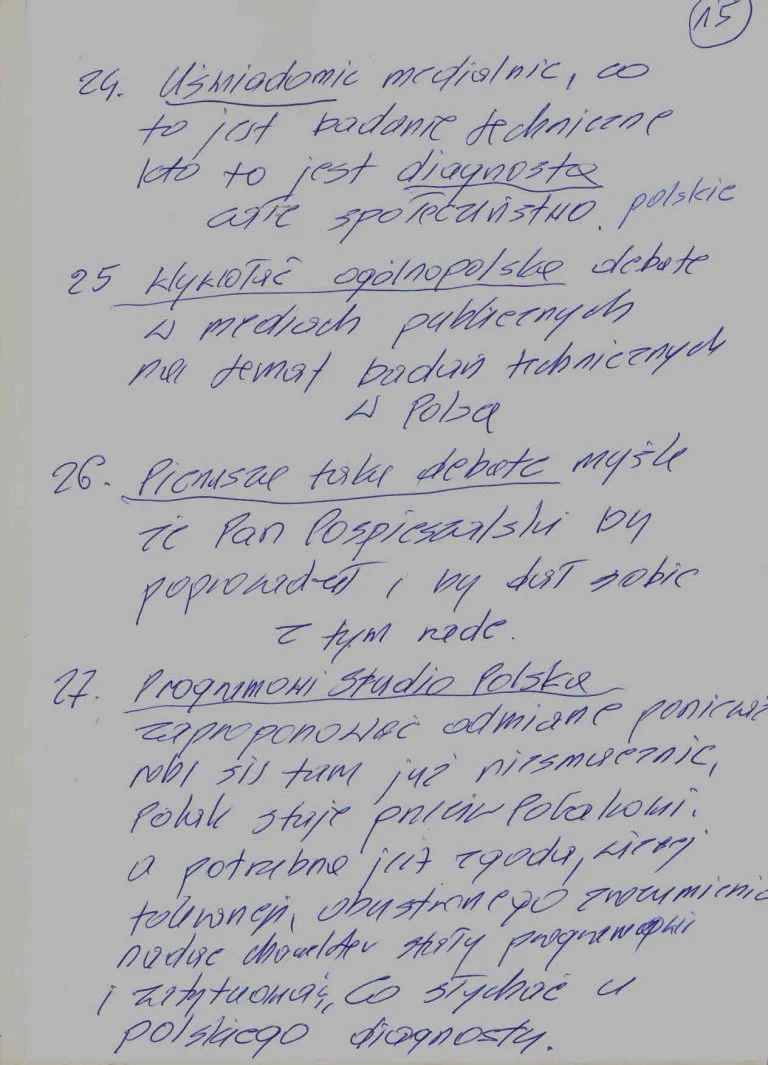 15
24. Uświadomić medialnie, co
to jest badanie techniczne
kto to jest diagnosta
całe społeczeństwo. polskie
25 Wywołać ogólnopolską debatę
w mediach publicznych
na temat badań technicznych
w Polsce
26. Pierwszą taką debatę myślę
że Pan Pospieszalski by
poprowadził i by dał sobie
z tym radę.
27. Programowi Studio Polska
zaproponować odmianę ponieważ
robi się tam już niesmacznie,
Polak staje przeciw Polakowi.
a potrzebna jest zgoda, więcej
tolerancji, obustronnego zrozumienia
nadać charakter stały
i zatytuować, Co słychać u
polskiego diagnosty.